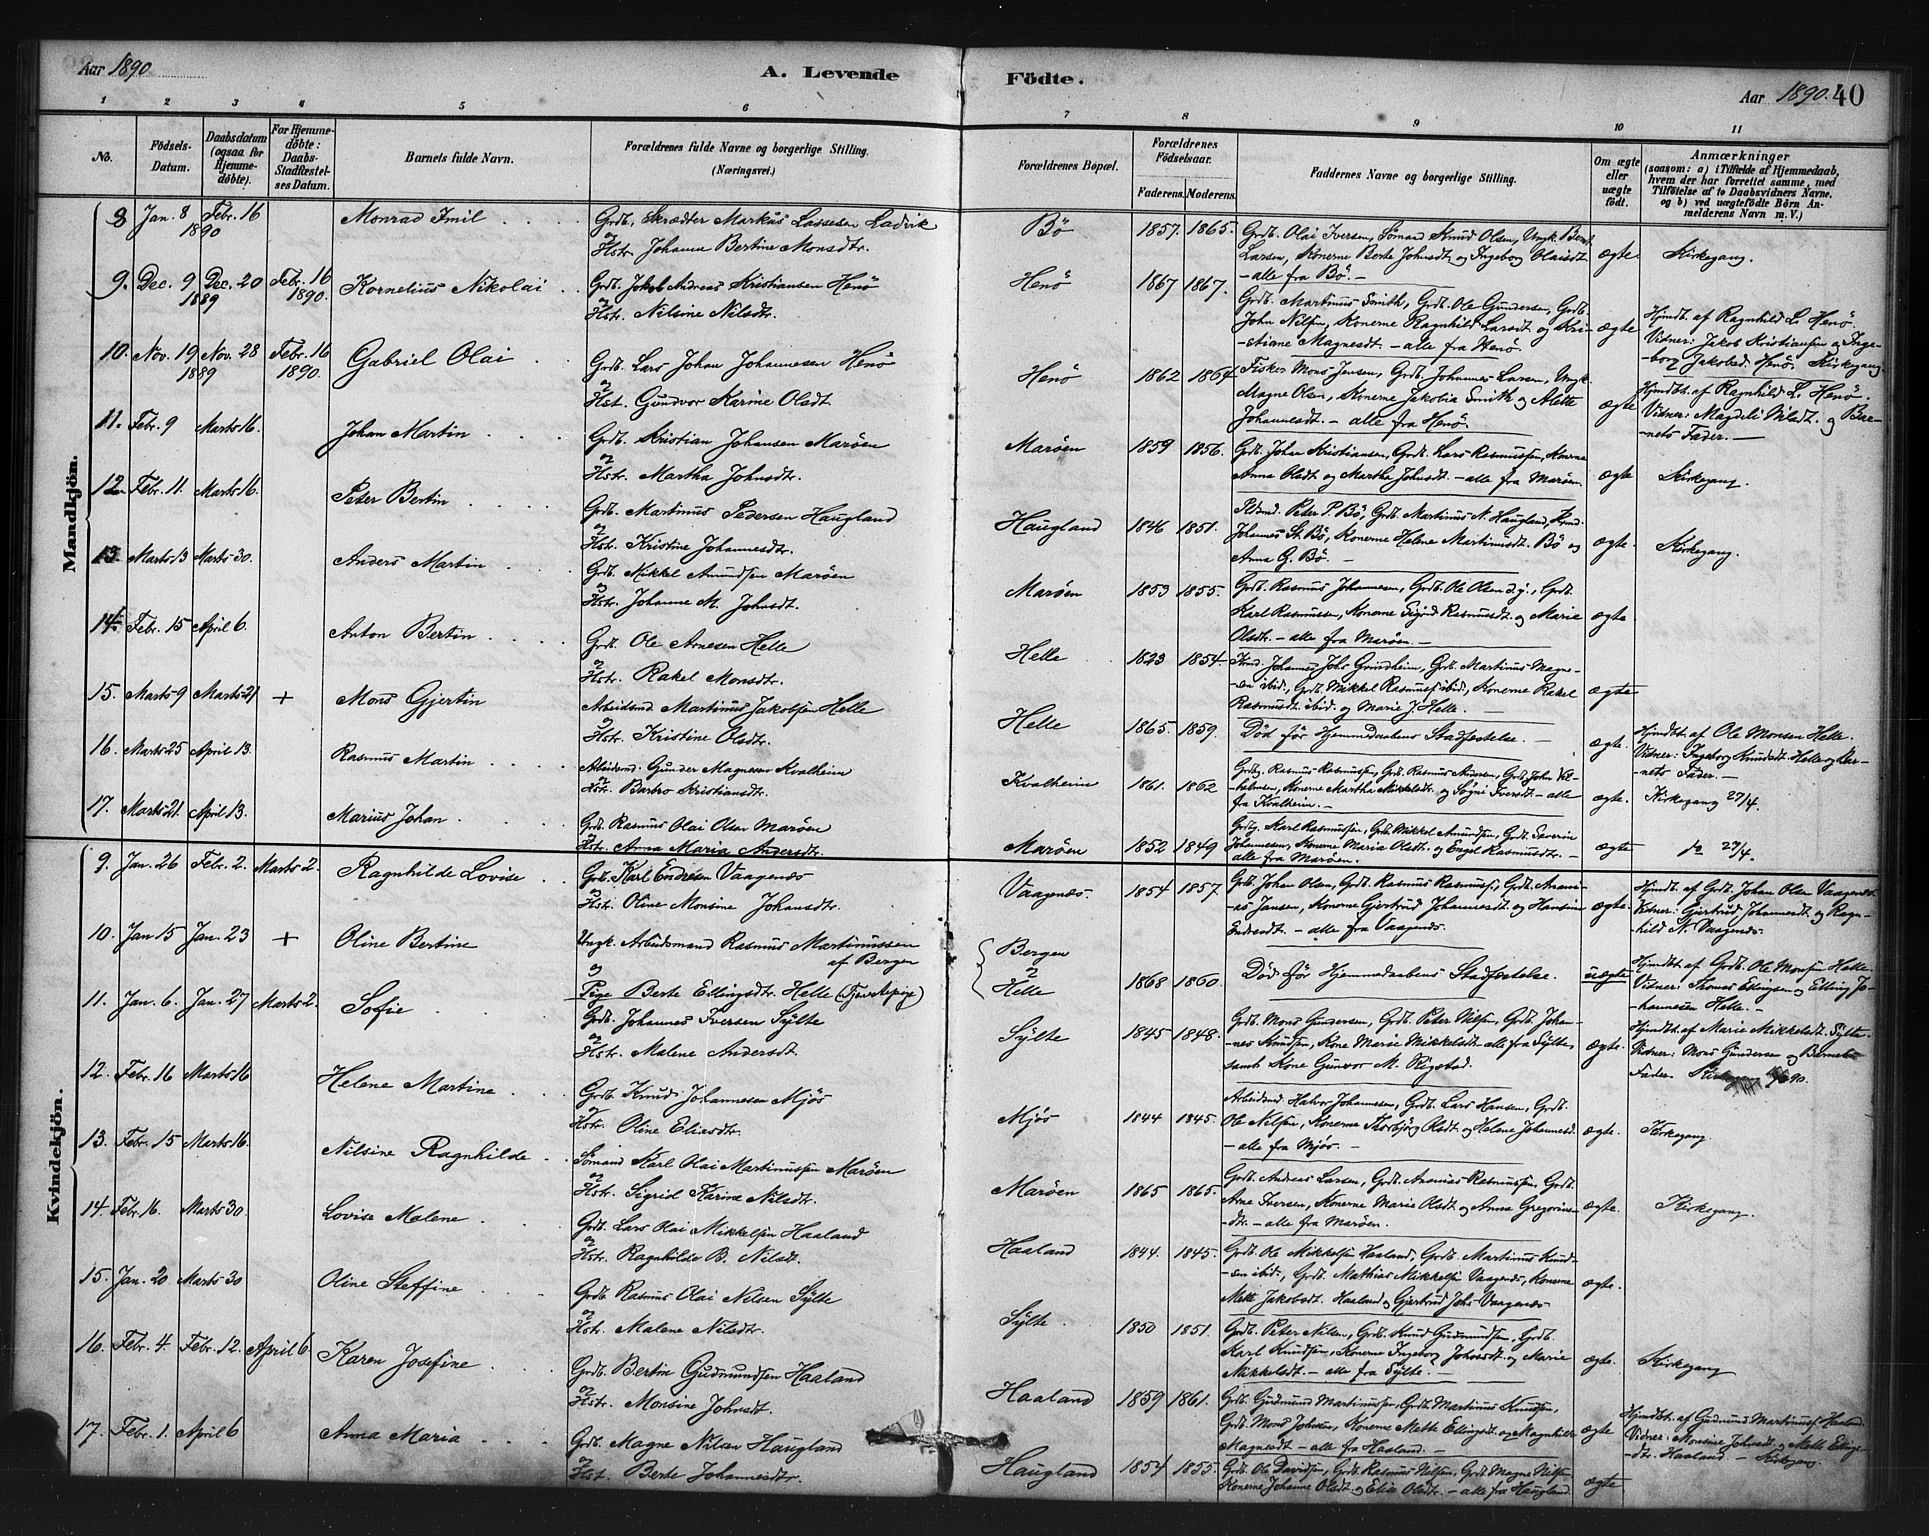 Aar 1890.
A. Levende Födte.
Aar 1890. 40
1 2 3 4 5 6 7 8 9 10 11
No.
Födsels-Datum.
Daabsdatum (ogsaa for Hjemme-döbte).
For Hjemme-döbte: Daabs-Stadfæstel-ses Datum.
Barnets fulde Navn.
Forældrenes fulde Navne og borgerlige Stilling. (Næringsvei.)
Forældrenes Bopæl.
Forældrenes Födselsaar.
Faderens. Moderens.
Faddernes Navne og borgerlige Stilling.
Om ægte eller uægte födt.
Anmærkninger
(saasom: a) i Tilfælde af Hjemmedaab,
hvem der har forrettet samme, med
Tilföielse af to Daabsvidners Navne.
og b) ved uægtefödte Börn An-
melderens Navn m. V.)
Mandkjön.
8 Jan. 8 1890 Febr. 16 Monrad Emil
Grdb. Skrædder Markus Lassesen Ladvik
og Hstr. Johanne Bertine Monsdtr.
Bö 1857. 1865.
Grdb. Olai Iversen, Sömand Knud Olsen, Ungk. Bernt
Larsen, Konerne Berte Johnsdt. og Ingeborg Olaisdt.
– alle fra Bö. –
ægte Kirkegang.
9. Dec. 9 1889 Dec. 20 Febr. 16 1890. Kornelius Nikolai
Grdb. Jakob Andreas Kristiansen Henö
og Hstr. Nilsine Nilsdtr.
Henö 1867 1867.
Grdb. Martinus Smith, Grdb. Ole Gundersen, Grdb.
John Nilsen, Konerne Ragnhild Larsdt. og Kri-
stiane Magnesdt. – alle fra Henö.
ægte
Hjmdbt. af Ragnhild L. Henö.
Vidner: Jakob Kristiansen og Inge-
borg Jakobsd. Henö. Kirkegang.
10. Nov. 19 1889 Nov. 28 Febr. 16 1890. Gabriel Olai
Grdb. Lars Johan Johannesen Henö
og Hst. Gundvor Karine Olsdt.
Henö 1862 1864
Fisker Mons Jensen, Grdb. Johannes Larsen, Ungk.
Magne Olsen, Konerne Jakobia Smith og Alette
Johannesdt. – alle fra Henö.
ægte
Hjmdbt. af Ragnhild L. Henö.
Vidner: Magdeli Nilsdt. og Bar-
nets Fader. –
11. Febr. 9 Marts 16. Johan Martin
Grdb. Kristian Johansen Maröen
og Hstr. Martha Johnsdt.
Maröen 1859 1856.
Grdb. Johan Kristiansen, Grdb. Lars Rasmussen, Konerne
Anna Olsdt. og Martha Johnsdt. – alle fra Maröen.
ægte Kirkegang.
12 Febr. 11. Marts 16. Peter Bertin
Grdb. Martinus Pedersen Haugland
og Hstr. Kristine Johannesdtr.
Haugland 1846 1851.
Peter P. Bö, Grdb. Martinus N. Haugland,
Johannes St. Bö, Konerne Helene Martinusdt. Bö og
Anna G. Bö. –
ægte. Kirkegang.
13. Marts 13 Marts 30. Anders Martin
Grdb. Mikkel Amundsen Maröen
og Hstr. Johanne M. Johnsdt.
Maröen 1853 1855.
Grdb. Rasmus Johannesen, Grdb. Ole Olsen d.y., Grdb.
Karl Rasmussen, Konerne Sigrid Rasmusdt. og Marie
Olsdtr. – alle fra Maröen. –
ægte
14. Febr. 15 April 6. Anton Bertin
Grdb. Ole Arnesen Helle
og Hstr. Rakel Monsdtr.
Helle 1823 1854.
Johannes Johs. Grindheim, Grdb. Martinus Magne-
sen ibid., Grdb. Mikkel Rasmusf. ibid., Konerne Rakel
Rasmusdt. ibid. og Marie J. Helle. –
ægte
15. Marts 9 Marts 21 + Mons Gjertin
Arbeidsmd. Martinus Jakobsen Helle
og Hstr. Kristine Olsdtr.
Helle 1865. 1859.
Död för Hjemmedaabens Stadfæstelse. –
ægte.
Hjmdbt. af Ole Monsen Helle.
Vidner: Ingeborg Knudsdt. Helle og Bar-
nets Fader. –
16. Marts 25 April 13. Rasmus Martin
Arbeidsmd. Gunder Magnesen Kvalheim
og Hstr. Barbro Kristiansdtr.
Kvalheim 1861. 1862
Grdbg. Rasmus Rasmussen, Grdb. Rasmus Andersen, Grdb. John Vil-
helmsen, Konerne Martha Mikkelsdt. og Sögni Iversdt. – alle
fra Kvalheim. –
ægte. Kirkegang 27/4.
17. Marts 21. April 13. Marius Johan.
Grdb. Rasmus Olai Olsen Maröen
og Hstr. Anna Maria Andersdtr.
Maröen 1852 1849
Grdbg. Karl Rasmussen, Grdb. Mikkel Amundsen, Grdb. Severin
Johannesen, Konerne Maria Olsdt. og Engel Rasmusdtr. –
alle fra Maröen.
ægte do 27/4.
Kvindekjön.
9. Jan. 26 Febr. 2. Marts 2. Ragnhilde Lovise
Grdb. Karl Endresen Vaagenæs
og Hstr. Oline Monsine Johansdtr.
Vaagenæs. 1854 1857.
Grdb. Johan Olsen, Grdb. Rasmus Rasmusf., Grdb. Anani-
as Jansen, Konerne Gjertrud Johannesdt. og Hansine
Endresdt. – alle fra Vaagenæs.
ægte.
Hjmdbt. af Grdb. Johan Olsen Vaagenæs.
Vidner: Gjertrud Johannesdt. og Ragn-
hild N. Vaagenæs.
10. Jan 15 Jan. 23 + Oline Bertine
Ungk. Arbeidsmand Rasmus Martinussen
af Bergen
og
Pige Berte Ellingsdtr. Helle (Tjenestepige)
Bergen og Helle 1868 1860.
Död för Hjemmedaabens Stadfæstelse.
uægte
Hjmdbt. af Grdb. Ole Monsen Helle.
Vidner: Thomas Ellingsen og Elling Jo-
hannesen Helle. –
11. Jan. 6. Jan. 27 Marts 2. Sofie
Grdb. Johannes Iversen Sylte
og Hstr. Malene Andersdt.
Sylte 1845 1848.
Grdb. Mons Gundersen, Grdb. Peter Nilsen, Grdb. Johan-
nes Knudsen, Kone Marie Mikkelsdt. – alle fra Sylte,
samt Kone Gunvor M. Rigstad.
ægte.
Hjmdbt. af Marie Mikkelsdt. Sylte.
Vidner: Mons Gundersen og Barnets
Fader.
12. Febr. 16 Marts 16 Helene Martine
Grdb. Knud Johannesen Mjös
og Hstr. Oline Eliasdtr.
Mjös 1844 1845.
Arbeidsmd. Halvor Johannesen, Grdb. Lars Hansen, Grdb.
Ole Nilsen, Konerne Thorbjörg Olsdt. og Helene Johannesd.
– alle fra Mjös. –
ægte. Kirkegang.
13. Febr. 15 Marts 16. Nilsine Ragnhilde
Sömand Karl Olai Martinussen Maröen
og Hstr. Sigrid Karine Nilsdtr.
Maröen 1865 1865.
Grdb. Andreas Larsen, Grdb. Ananias Rasmussen, Grdb.
Arne Iversen, Konerne Marie Olsdt. og Anna Gregorius-
dtr. – alle fra Maröen.
ægte. Kirkegang.
14. Febr. 16. Marts 30. Lovise Malene
Grdb. Lars Olai Mikkelsen Haaland
og Hstr. Ragnhilde B. Nilsdt.
Haaland 1844. 1845.
Grdb. Ole Mikkelsen Haaland, Grdb. Martinus Knud-
sen ibid., Grdb. Mathias Mikkelsen Vaagenæs, Konerne
Mette Jakobsdt. Haaland og Gjertrud Johs. Vaagenæs
ægte.
15. Jan. 20 Marts 30 Oline Steffine
Grdb. Rasmus Olai Nilsen Sylte
og Hstr. Malene Nilsdtr.
Sylte 1850 1851.
Grdb. Peter Nilsen, Grdb. Knud Gudmundsen, Grdb.
Karl Knudsen, Konerne Ingeborg Johansdt. og Marie
Mikkelsdt. – alle fra Sylte. –
ægte. Kirkegang
16. Febr. 4. Febr. 12. April 6. Karen Josefine
Grdb. Bertin Gudmundsen Haaland
og Hstr. Monsine Johnsdt.
Haaland 1859 1861.
Grdb. Gudmund Martinussen, Grdb. Martinus Knudsen,
Grdb. Mons Johnsen, Konerne Mette Ellingsdt. og Magnhilde
Magnesdt. – alle fra Haaland. –
ægte
Hjmdbt. af Gudmund Martinusf. Haaland.
Vidner: Monsine Johnsdt. og Mette Ellings-
dt. Haaland. – Kirkegang.
17. Febr. 1. April 6 Anna Maria
Grdb. Magne Nilsen Haugland
og Hst. Berte Johannesdtr.
Haugland 1854 1855.
Grdb. Ole Davidsen, Grdb. Rasmus Nilsen, Grdb. Magne Nilsen,
Konerne Johanne Olsdt. og Elise Olsdtr. – alle fra Haugland.
ægte